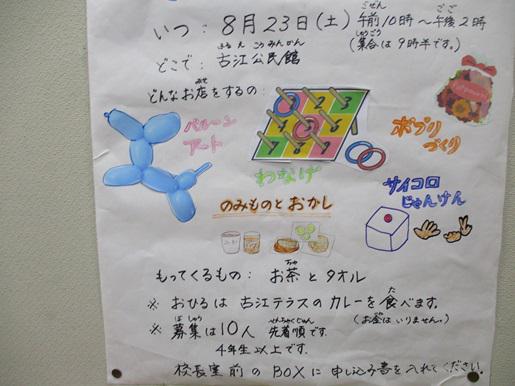 いつ: 8月23日(土) 午前10時～午後2時
(集合は9時半です。)
どこで: 古江公民館
どんなお店をするの:
バルーンアート
わなげ
ポプリづくり
のみものとおかし
サイコロじゃんけん
もってくるもの: お茶とタオル
※ おひるは古江テラスのカレーを食べます。
(お金はいりません。)
※ 募集は10人 先着順です。
4年生以上です。
校長室前のBOXに申し込み書を入れてください。